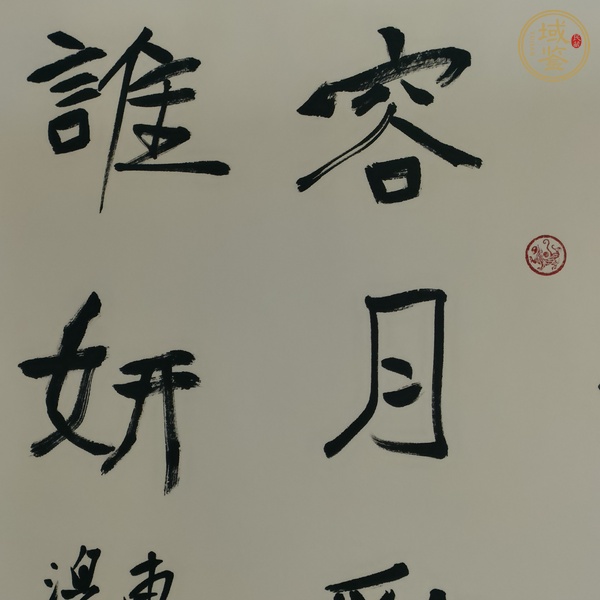 容月
誰妍
域鑒